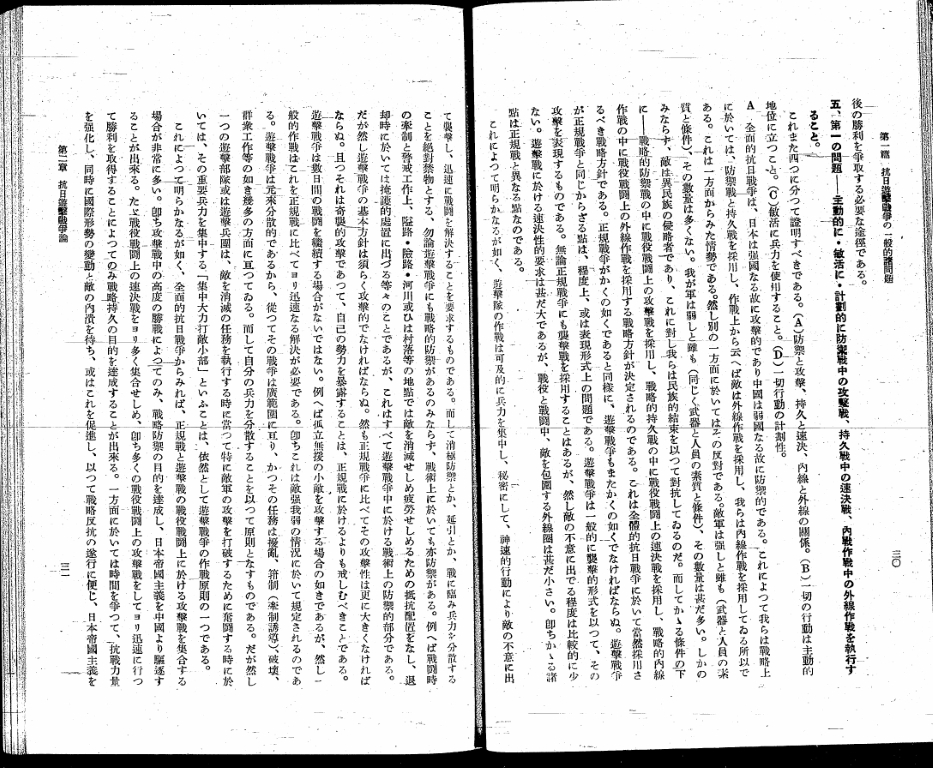 第一篇 抗日遊擊戰爭の一般的諸問題
三〇
後の勝利を爭取する必要な途徑である。
五、第一の問題――主動的に・敏活に・計劃的に防禦戰中の攻擊戰、持久戰中の速決戰、內戰作戰中の外線作戰を執行す
ること。
これまた四つに分つて證明すべきである。(A)防禦と攻擊、持久と速決、內線と外線の關係。(B)一切の行動は主動的
地位に立つこと。(C)敏活に兵力を使用すること。(D)一切行動の計劃性。
A 全面的抗日戰爭は、日本は强國なる故に攻擊的であり中國は弱國なる故に防禦的である。これによつて我らは戰略上
に於いては、防禦戰と持久戰を採用し、作戰上から云へば敵は外線作戰を採用し、我らは內線作戰を採用してゐる所以で
ある。これは一方面からみた情勢である。然し別の一方面に於いてはその反對である。敵軍は强しと雖も(武器と人員の素
質と條件)、その數量は多くない。我が軍は弱しと雖も(同じく武器と人員の素質と條件)、その數量は甚だ多い。しかの
みならず、敵は異民族の侵略者であり、これに對し我らは民族的結束を以つて對抗してゐるのだ。而してかゝる條件の下
に――戰略的防禦戰の中に戰役戰鬪上の攻擊戰を採用し、戰略的持久戰の中に戰役戰鬪上の速決戰を採用し、戰略的內線
作戰の中に戰役戰鬪上の外線作戰を採用する戰略方針が決定されるのである。これは全體的抗日戰爭に於いて當然採用さ
るべき戰略方針である。正規戰爭がかくの如くであると同樣に、遊擊戰爭もまたかくの如くでなければならぬ。遊擊戰爭
が正規戰爭と同じからざる點は、程度上、或は表現形式上の問題である。遊擊戰爭は一般的に襲擊的形式を以つて、その
攻擊を表現するものである。無論正規戰爭にも襲擊戰を採用することはあるが、然し敵の不意に出でる程度は比較的に少
ない。遊擊戰に於ける速決性的要求は甚だ大であるが、戰役と戰鬪中、敵を包圍する外線圈は甚だ小さい。卽ちかゝる諸
點は正規戰と異なる點なのである。
これによつて明らかなるが如く、遊擊隊の作戰は可及的に兵力を集中し、秘密にして、神速的行動により敵の不意に出
で襲擊し、迅速に戰鬪を解決することを要求するものである。而して消極防禦とか、延引とか、戰に臨み兵力を分散する
ことを絕對禁物とする、勿論遊擊戰爭にも戰略的防禦があるのみならず、戰術上に於いても亦防禦がある。例へば戰鬪時
の牽制と警戒工作上、隘路・險路・河川或ひは村落等の地點では敵を消滅せしめ疲勞せしめるための抵抗配置をなし、退
却時に於いては掩護的處置に出づる等々のことであるが、これはすべて遊擊戰爭中に於ける戰術上の防禦的部分である。
だが然し遊擊戰爭の基本方針は須らく攻擊的でなければならぬ。然も正規戰爭に比べてその攻擊性は更に大きくなければ
ならぬ。且つそれは奇襲的攻擊であつて、自己の勢力を暴露することは、正規戰に於けるよりも戒しむべきことである。
遊擊戰爭は數日間の戰鬪を繼續する場合がないではない。例へば孤立無援の小敵を攻擊する場合の如きであるが、然し一
般的作戰はこれを正規戰に比べてヨリ迅速なる解決が必要である。卽ちこれは敵强我弱の情況に於いて規定されるのであ
る。遊擊戰爭は元來分散的であるから、從つてその戰爭は廣範圍に亙り、かつその任務は擾亂、箝制(牽制誘導)、破壞、
群衆工作等の如き幾多の方面に亙つてゐる。而して自分の兵力を分散することを以つて原則となすものである。だが然し
一つの遊擊部隊或は遊擊兵團は、敵を消滅の任務を執行する時に當つて特に敵軍の攻擊を打破するために奮鬪する時に於
いては、その重要兵力を集中する「集中大力打敵小部」といふことは、依然として遊擊戰爭の作戰原則の一つである。
これによつて明らかなるが如く、全面的抗日戰爭からみれば、正規戰と遊擊戰の戰役戰鬪上に於ける攻擊戰を集合する
場合が非常に多い。卽ち攻擊戰中の高度の勝戰によつてのみ、戰略防禦の目的を達成し、日本帝國主義を中國より驅逐す
ることが出來る。たゞ戰役戰鬪上の速決戰をヨリ多く集合せしめ、卽ち多くの戰役戰鬪上の攻擊戰をしてヨリ迅速に行つ
て勝利を取得することによつてのみ戰略持久の目的を達成することが出來る。一方面に於いては時間を爭つて、抗戰力量
を强化し、同時に國際形勢の變動と敵の內潰を待ち、或はこれを促進し、以つて戰略反抗の遂行に便じ、日本帝國主義を
第二章 抗日遊擊戰爭論
三一